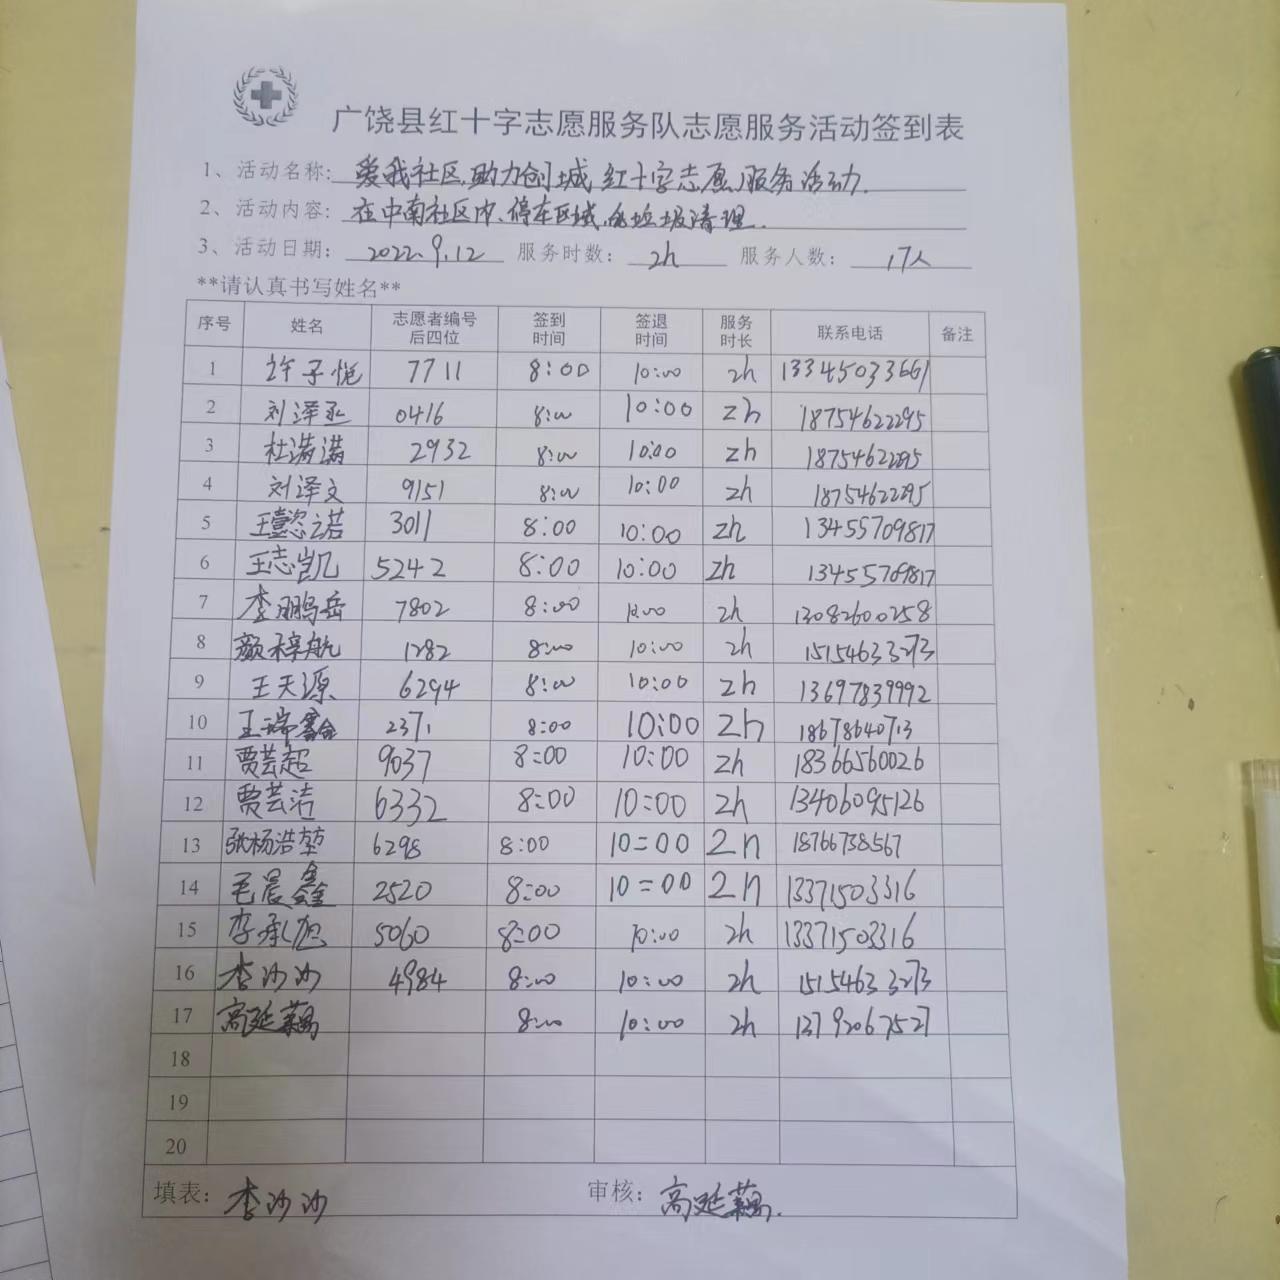 广饶县红十字志愿服务队志愿服务活动签到表
1、活动名称: 爱我社区,助力创城,红十字志愿服务活动.
2、活动内容: 在中南社区内、停车区域,垃圾清理.
3、活动日期: 2022.9.12 服务时数: 2h 服务人数: 17人
**请认真书写姓名**
序号 姓名 志愿者编号后四位 签到时间 签退时间 服务时长 联系电话 备注
1 许子悦 7711 8:00 10:00 2h 13345033661
2 刘泽丞 0416 8:00 10:00 2h 18754622295
3 杜满满 2932 8:00 10:00 2h 18754622295
4 刘泽文 9151 8:00 10:00 2h 18754622295
5 王懿之诺 3011 8:00 10:00 2h 13455709817
6 王志凯 5242 8:00 10:00 2h 13455709817
7 李鹏岳 7802 8:00 10:00 2h 13082600258
8 颜梓航 1282 8:00 10:00 2h 15154633273
9 王天源 6294 8:00 10:00 2h 13697839992
10 王瑞鑫 2371 8:00 10:00 2h 18678640713
11 贾芸超 9037 8:00 10:00 2h 18366560026
12 贾芸洁 6332 8:00 10:00 2h 13406095126
13 张杨浩堃 6298 8:00 10:00 2h 18766738567
14 毛晨鑫 2520 8:00 10:00 2h 13371503316
15 李承旭 5060 8:00 10:00 2h 13371503316
16 李沙沙 4984 8:00 10:00 2h 15154633273
17 高延藕 8:00 10:00 2h 13792067527
18
19
20
填表: 李沙沙 审核: 高延藕.